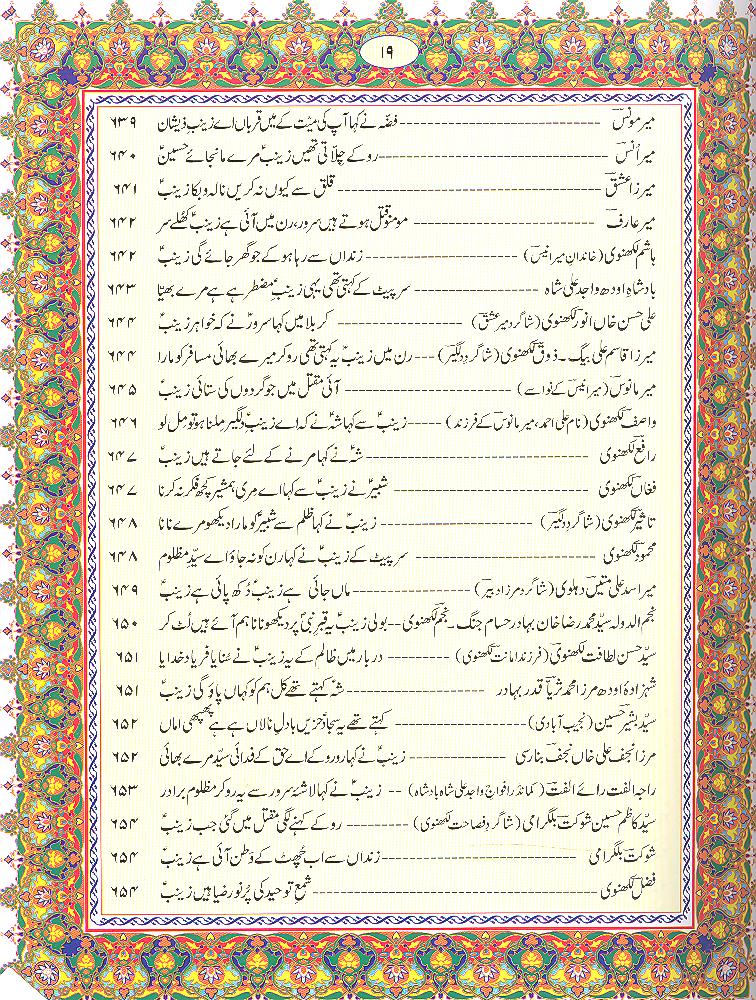 ۱۹
میر مونسؔ ---------- فضّہ نے کہا آپ کی میّت کے میں قرباں اے زینبؑ ذیشان ۶۳۹
میر اُنسؔ ---------- رو کے چلّاتی تھیں زینبؑ مرے مانجائے حسینؑ ۶۴۰
میرزا عشقؔ ---------- قلق سے کیوں نہ کریں نالہ و بکا زینبؑ ۶۴۱
میر عارفؔ ---------- مومنو قتل ہوتے ہیں سرور، رن میں آئی ہے زینبؑ کُھلے سر ۶۴۲
ہاشم لکھنوی (خاندان میر انیسؔ) ---------- زنداں سے رہا ہو کے جو گھر جائے گی زینبؑ ۶۴۲
بادشاہِ اودھ واجد علی شاہ ---------- سر پیٹ کے کہتی تھی یہی زینبِؑ مضطر ہے ہے مرے بھیّا ۶۴۳
علی حسن خاں انورؔ لکھنوی (شاگرد میر عشقؔ) ---------- کربلا میں کہا سرورؑ نے کہ خواہر زینبؑ ۶۴۴
میرزا قاسم علی بیگ ۔ ذوقؔ لکھنوی (شاگردِ دلگیرؔ) --- رن میں زینبؑ یہ کہتی تھی رو کر میرے بھائی مسافر کو مارا ۶۴۴
میر مانوسؔ (میر انیسؔ کے نواسے) ---------- آئی مقتل میں جو گردوں کی ستائی زینبؑ ۶۴۵
واصفؔ لکھنوی (نام علی احمد، میر مانوسؔ کے فرزند) ----- زینبؑ سے کہا شہؑ نے کہ اے زینبِؑ دلگیر ملنا ہو تو مِل لو ۶۴۶
رافعؔ لکھنوی ---------- شہؑ نے کہا مرنے کے لئے جاتے ہیں زینبؑ ۶۴۷
فغاںؔ لکھنوی ---------- شبیرؑ نے زینبؑ سے کہا اے مِری ہمشیر کچھ فکر نہ کرنا ۶۴۷
تاثیرؔ لکھنوی (شاگردِ دلگیرؔ) ---------- زینبؑ نے کہا ظلم سے شبیرؑ کو مارا دیکھو مرے نانا ۶۴۸
محمودؔ لکھنوی ---------- سر پیٹ کے زینبؑ نے کہا رن کو نہ جاؤ اے سیّدِ مظلوم ۶۴۸
میر اسد علی متینؔ دہلوی (شاگرد مرزا دبیرؔ) ---------- ماں جائی ہے زینبؑ دُکھ پائی ہے زینبؑ ۶۴۹
نجم الدولہ سیّد محمد رضا خان بہادر حسام جنگ ۔ نجمؔ لکھنوی -- بولی زینبؑ یہ قبرِ نبیؐ پر دیکھو نانا ہم آئے ہیں لُٹ کر ۶۵۰
سیّد حسن لطافتؔ لکھنوی (فرزند امانتؔ لکھنوی) -------- دربار میں ظالم کے یہ زینبؑ نے سُنایا فریاد خدایا ۶۵۱
شہزادۂ اودھ مرزا محمد ثریّا قدر بہادر ---------- شہؑ کہتے تھے کل ہم کو کہاں پاؤ گی زینبؑ ۶۵۱
سیّد بشیر حسین (نجیب آبادی) ---------- کہتے تھے یہ سجادؑ حزیں بادلِ نالاں ہے ہے پھپھی اماں ۶۵۲
مرزا نجف علی خاں نجفؔ بنارسی ---------- زینبؑ نے کہا رو رو کے اے حق کے فدائی سیّد مرے بھائی ۶۵۲
راجہ الفت رائے الفتؔ (کمانڈر افواج واجد علی شاہ بادشاہ) -- زینبؑ نے کہا لاشۂ سرور سے یہ رو کر مظلوم برادر ۶۵۳
سیّد کاظم حسین شوکتؔ بلگرامی (شاگرد فصاحتؔ لکھنوی) --------- رو کے کہنے لگی مقتل میں گئی جب زینبؑ ۶۵۴
شوکتؔ بلگرامی ---------- زنداں سے اب چُھٹ کے وطن آئی ہے زینبؑ ۶۵۴
فضلؔ لکھنوی ---------- شمعِ توحید کی پُر نور ضیا ہیں زینبؑ ۶۵۴